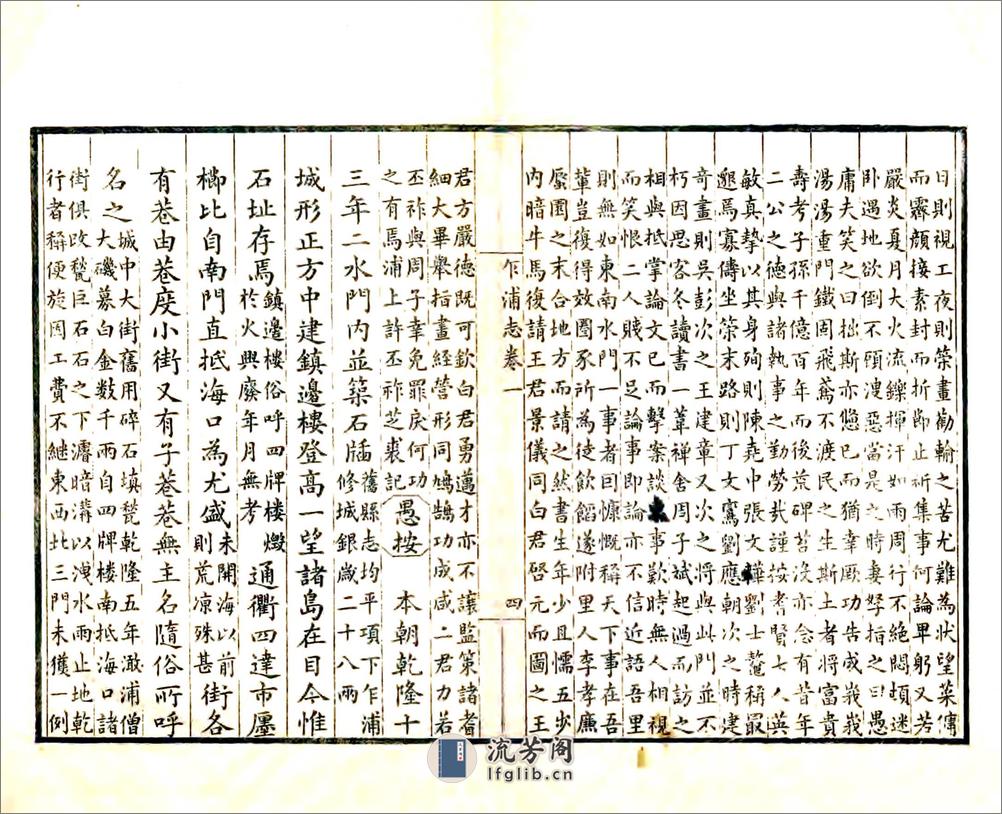 日則視工夜則榮畫勸輸之苦尤難為狀望菜傭
而霽顔接素封而折節止祈集事何論畢躬又若
嚴炎夏月大火流鑠揮汗如雨周行不絶悶頓迷
卧遇地欲倒不頋洩惡當是之時妻孥指之曰愚
庸夫笑之曰拙斯亦憊已而猶幸厥功告成峩峩
湯湯重門鐵固飛鳶不渡民之生斯土者將富貴
壽考子孫千億百年而後荒碑苔沒亦念有昔年
二公之德與諸執事之勤勞哉謹按耆賢七人英
敏真摯以其身殉則陳堯中張文韡劉士鼇稱最
邈焉寡儔坐策末路則丁文鶱劉應朝次之時建
奇畫則吳彭次之王建章又次之將與此門並不
朽因思客冬讀書一葦禪舍周子斌起過而訪之
相與抵掌論文已而擊案談事歎時無人相視
而笑恨二人賤不足論事即論亦不信近語吾里
則無如東南水門一事者回慷慨稱天下事在吾
輩豈復得效圂豕所為徒飲餡遂附里人李孝廉
蜃圉之末合地方而請之然書生年少且懦五步
内暗牛馬復請王君景儀同白君啓元而圖之王
乍浦志卷一
四
君方嚴德既可欽白君勇邁才亦不讓監策諸耆
細大畢舉指畫經營形同鳩鵠功成咸二君力若
丕祚與周子幸免罪戾何功
之有焉浦上許丕祚芝裘記
愚按
本朝乾隆十
三年二水門内並築石牐
舊縣志均平項下乍浦
修城銀歲二十八兩
城形正方中建鎮邊樓登高一望諸島在目今惟
石址存焉
鎮邊樓俗呼四牌樓燬
於火興廢年月無考
通衢四達市廛
櫛比自南門直抵海口為尤盛
未開海以前
則荒凉殊甚
街各
有巷由巷度小街又有子巷巷無主名隨俗所呼
名之
城中大街舊用碎石填甃乾隆五年澉浦僧
大磯募白金數千兩自四牌樓南抵海口諸
街俱改甃巨石石之下濬暗溝以洩水雨止地乾
行者稱便旋因工費不繼東西北三門未獲一例
流芳阁
lfglib.cn